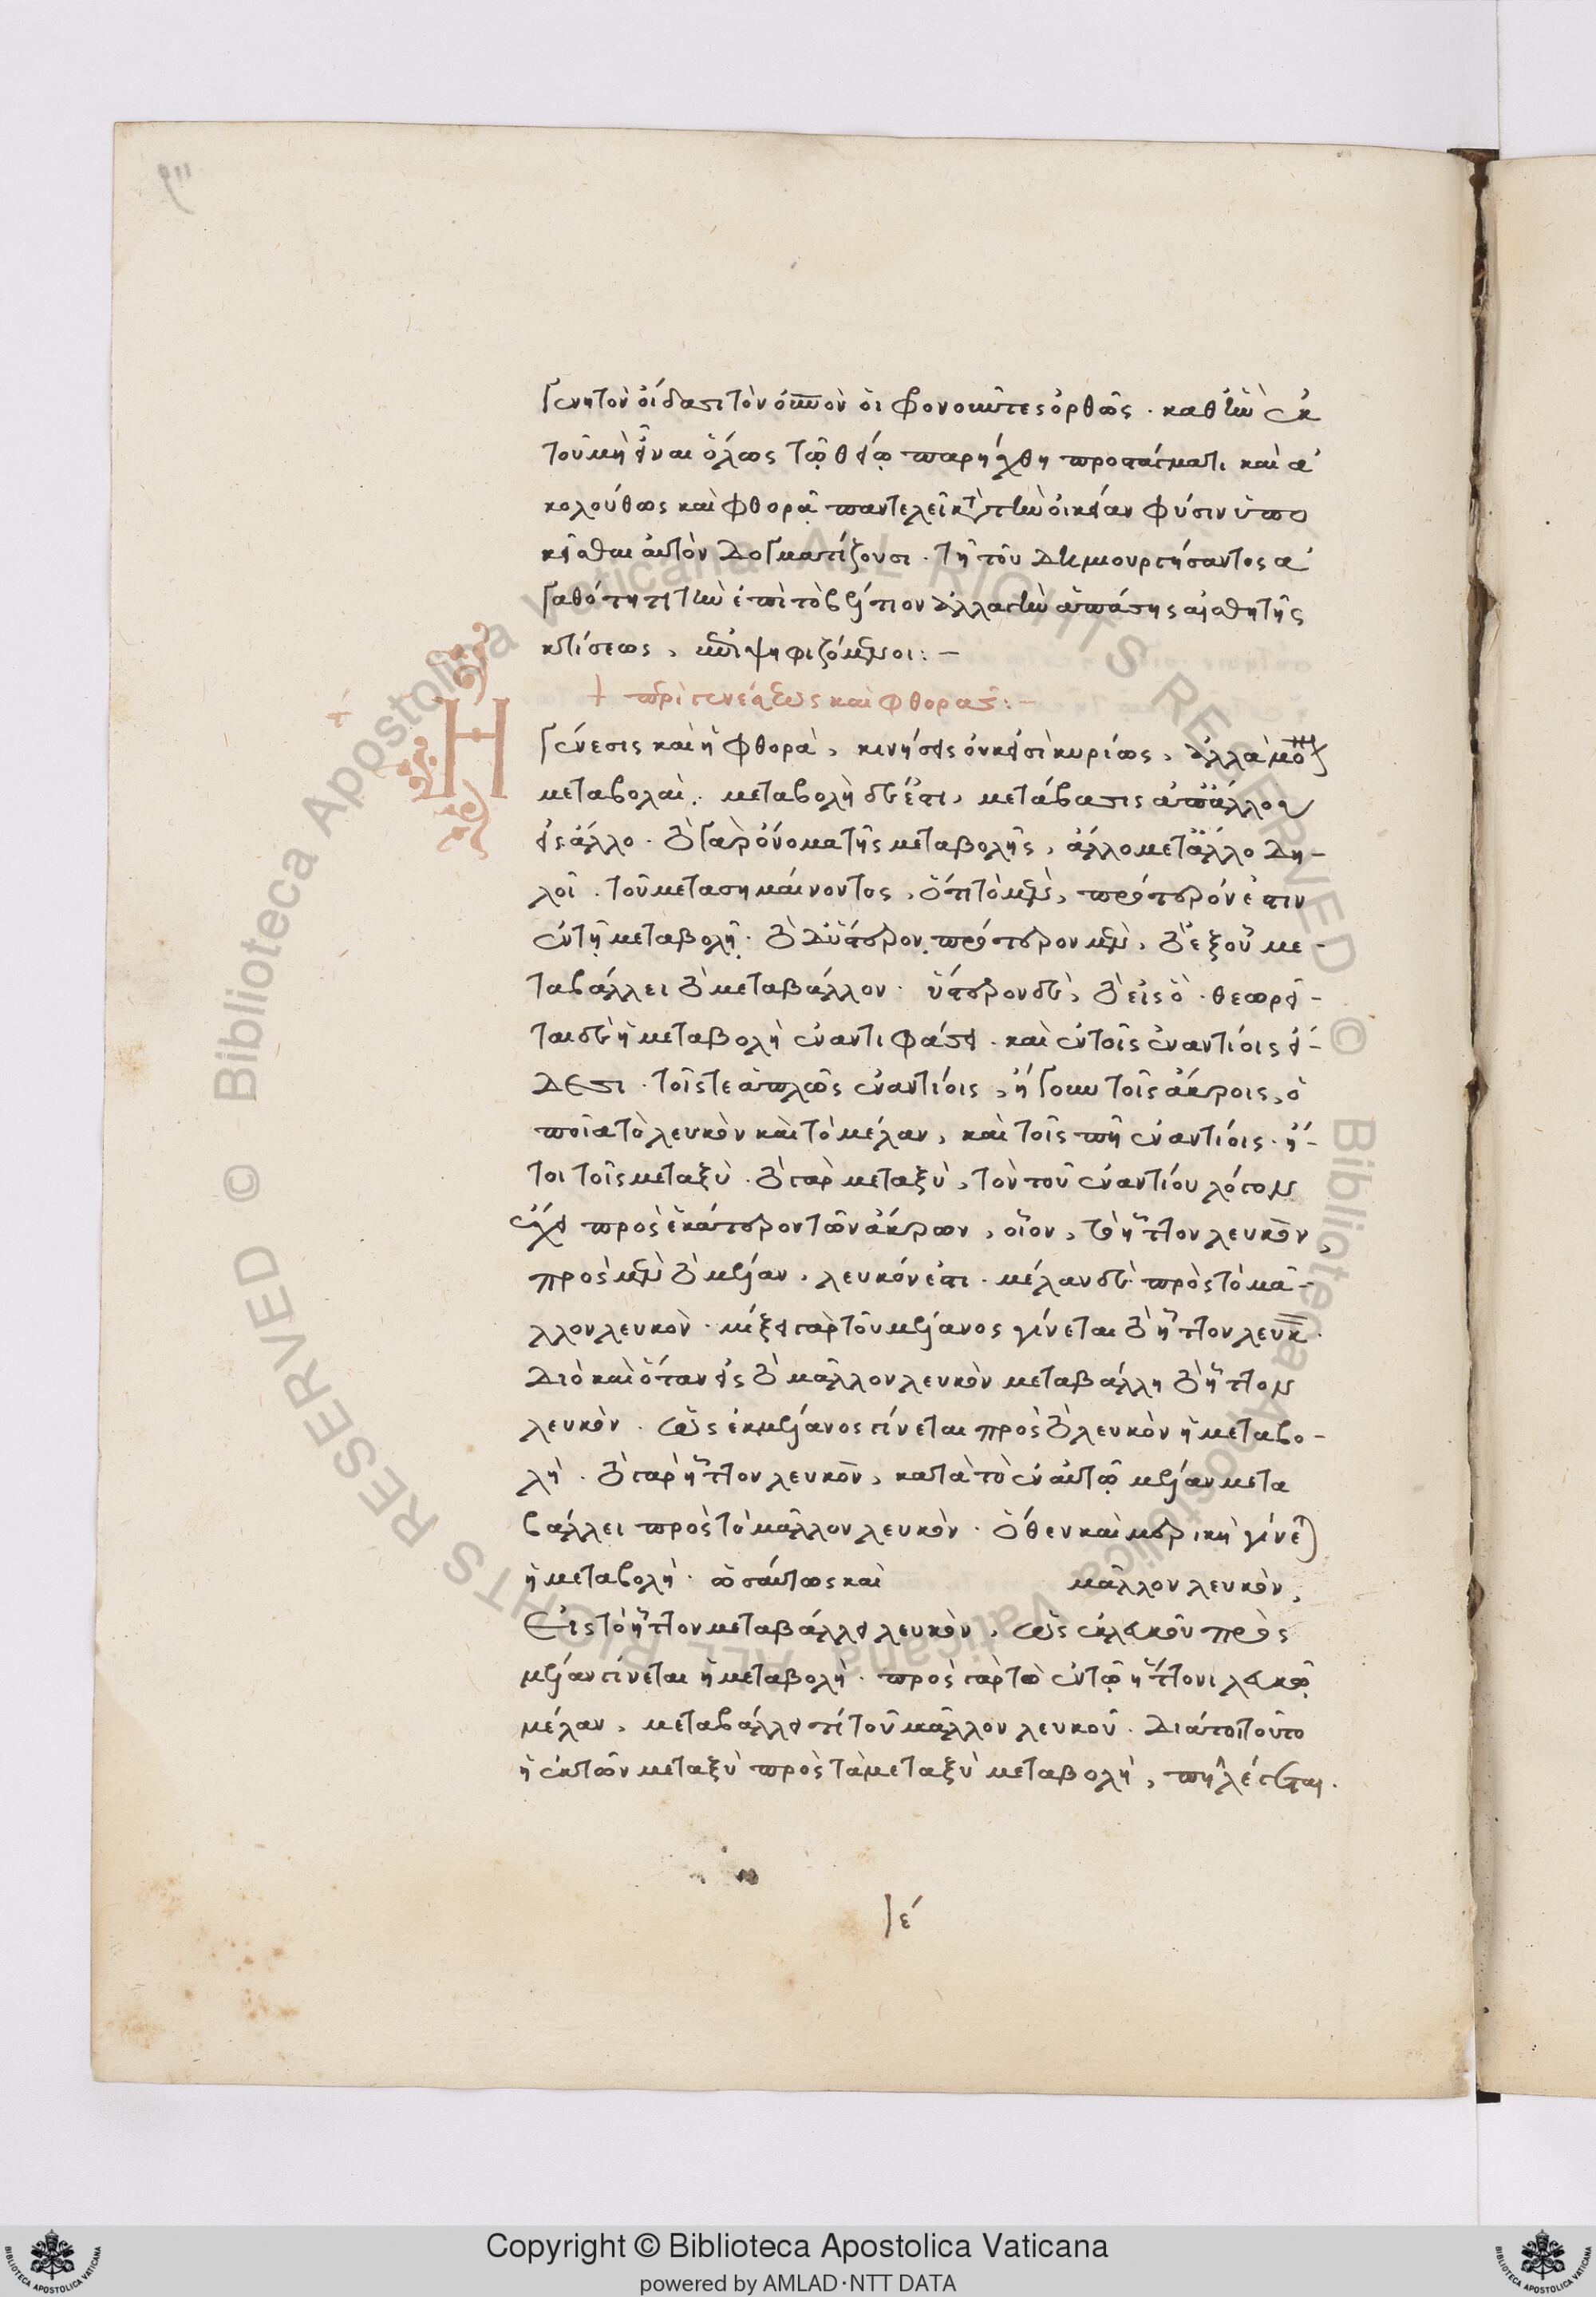 γενητὸν οἴδασι τὸν οὐρανὸν οἱ φρονοῦντες ὀρθῶς · καθ' ἣν ἐκ
τοῦ μὴ εἶναι ὅλως τῷ θείῳ παρήχθη προστάγματι καὶ ἀ
κολούθως καὶ φθορᾷ παντελεῖ κατὰ τὴν οἰκείαν φύσιν ὑπο
κεῖσθαι αὐτὸν δογματίζουσι · τῇ τοῦ δημιουργήσαντος ἀ
γαθότητι τὴν ἐπὶ τὸ βέλτιον ἀλλαγὴν ἁπάσης αἰσθητῆς
κτίσεως, ἐπιψηφιζόμενοι :–
+ περὶ γενέσεως καὶ φθορᾶς :–
Ἡ γένεσις καὶ ἡ φθορὰ, κινήσεις οὐκ εἰσὶ κυρίως, ἀλλὰ μόνον
μεταβολαί. μεταβολὴ δέ ἐστι, μετάβασις ἀπὸ ἄλλου
εἰς ἄλλο · τὸ γὰρ ὄνομα τῆς μεταβολῆς, ἄλλο μετ' ἄλλο δη-
λοῖ · τοῦ μετὰ σημαίνοντος, ὅτι τὸ μὲν, πρότερόν ἐστιν
ἐν τῇ μεταβολῇ · τὸ δ' ὕστερον. πρότερον μὲν, τὸ ἐξ οὗ με-
ταβάλλει τὸ μεταβάλλον · ὕστερον δὲ, τὸ εἰς ὅ · θεωρεῖ-
ται δὲ ἡ μεταβολὴ ἐν ἀντιφάσει · καὶ ἐν τοῖς ἐναντίοις εἴ-
δεσι · τοῖς τε ἁπλῶς ἐναντίοις, ἤγουν τοῖς ἄκροις, ὁ
ποῖα τὸ λευκὸν καὶ τὸ μέλαν, καὶ τοῖς πῇ ἐναντίοις · ἤ-
τοι τοῖς μεταξὺ · τὸ γὰρ μεταξὺ, τὸν τοῦ ἐναντίου λόγον
ἔχει πρὸς ἑκάτερον τῶν ἄκρων, οἷον, τὸ ἧττον λευκὸν,
πρὸς μὲν τὸ μέλαν, λευκόν ἐστι · μέλαν δὲ πρὸς τὸ μᾶ-
λλον λευκὸν · μίξει γὰρ τοῦ μέλανος γίνεται τὸ ἧττον λευκὸν ·
διὸ καὶ ὅταν εἰς τὸ μᾶλλον λευκὸν μεταβάλλῃ τὸ ἧττον
λευκὸν · ὡς ἐκ μέλανος γίνεται πρὸς τὸ λευκὸν ἡ μεταβο-
λὴ · τὸ γὰρ ἧττον λευκὸν, κατὰ τὸ ἐν αὐτῷ μέλαν μετα
βάλλει πρὸς τὸ μᾶλλον λευκὸν · ὅθεν καὶ μερικὴ γίνεται
ἡ μεταβολὴ · ὡσαύτως καὶ μᾶλλον λευκὸν,
εἰς τὸ ἧττον μεταβάλλει λευκὸν, ὡς ἐκ λευκοῦ πρὸς
μέλαν γίνεται ἡ μεταβολὴ · πρὸς γὰρ τὸ ἐν τῷ ἥττονι λευκῷ
μέλαν, μεταβάλλει τι τοῦ μᾶλλον λευκοῦ · διά τοι τοῦτο
ἡ ἐκ τῶν μεταξὺ πρὸς τὰ μεταξὺ μεταβολὴ, πῇ λέγεται.
ιε´
Copyright © Biblioteca Apostolica Vaticana
powered by AMLAD·NTT DATA